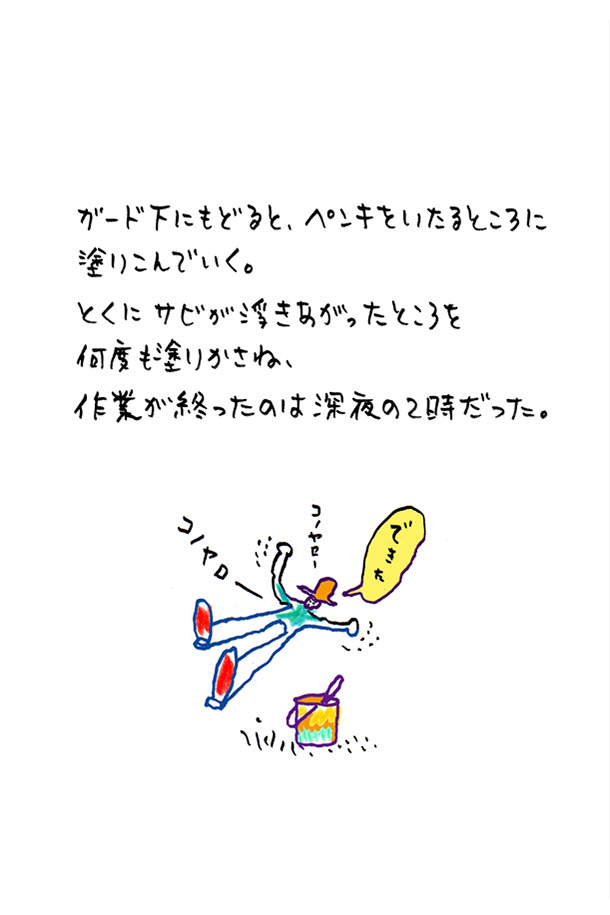 ガード下にもどると、ペンキをいたるところに
塗りこんでいく。
とくにサビが浮きあがったところを
何度も塗りかさね、
作業が終ったのは深夜の2時だった。
コノヤロー
コノヤロー
できた